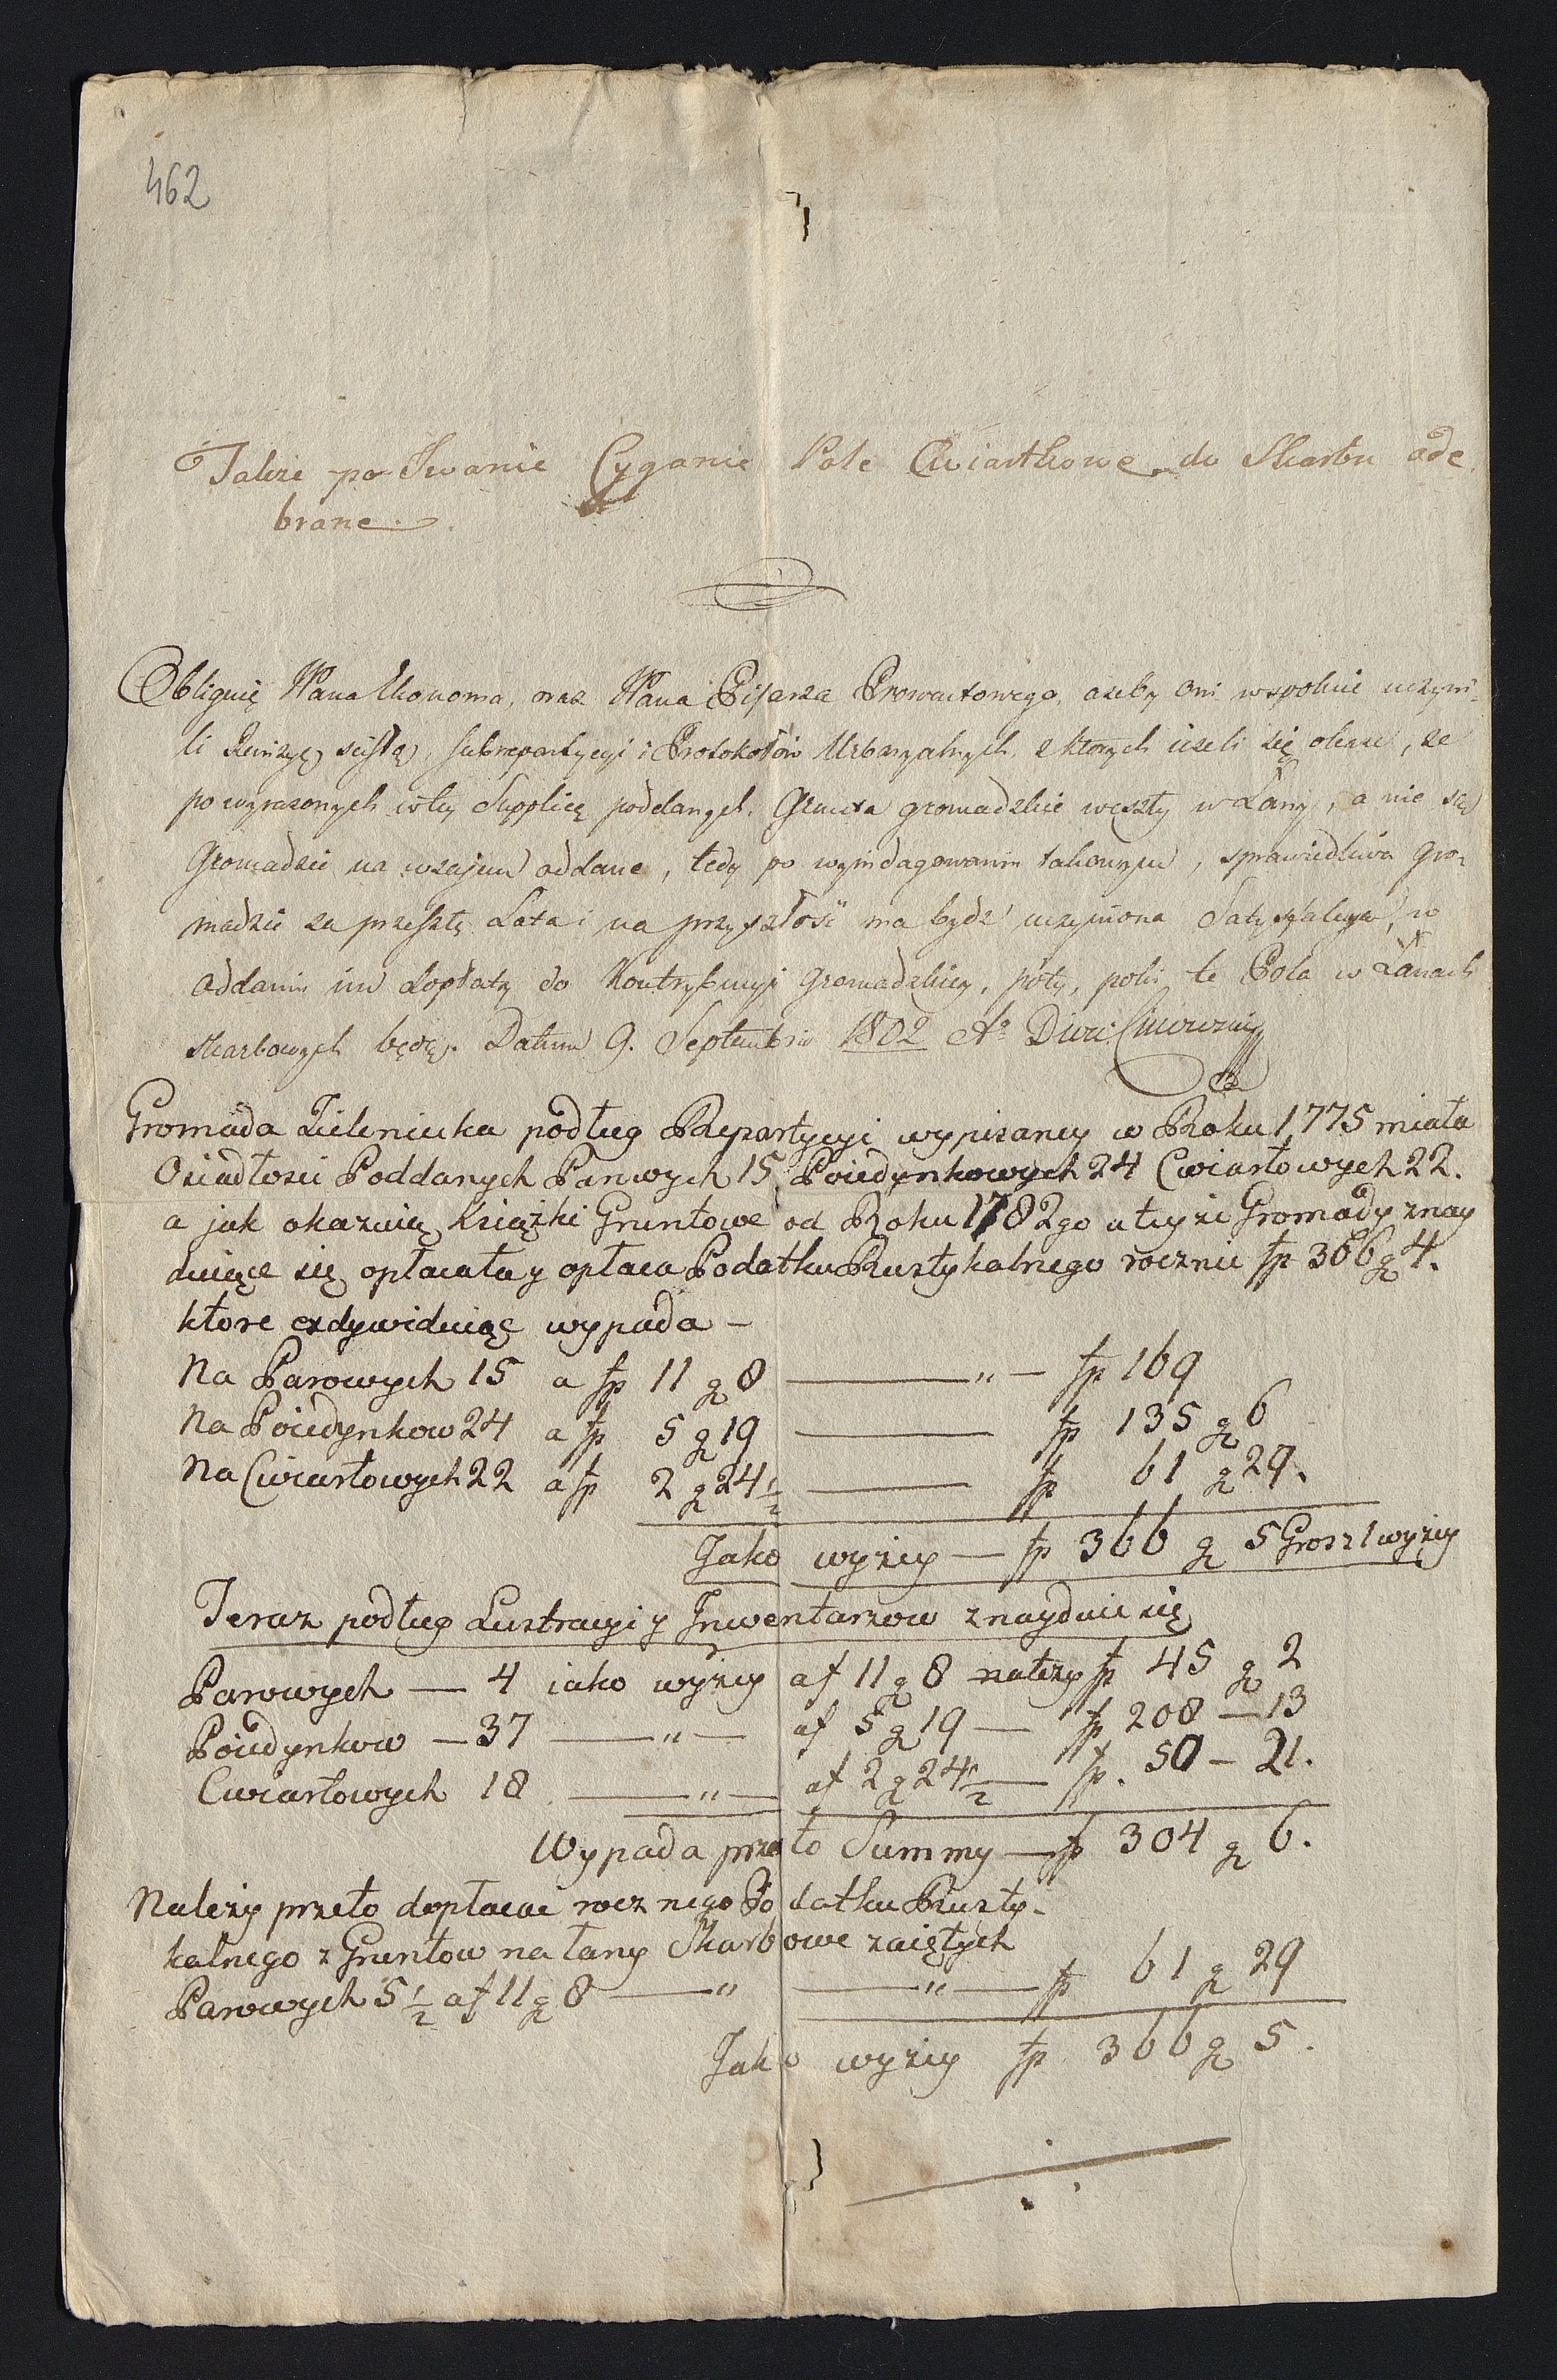 462
Także po Iwanie Cyganie Pole Cwiartkowe do Skarbu ode
brane.
Obliguię Pana Ekonoma, oraz Pana Pisarza Prowentowego, azeby oni wspolnie uczyni-
li Rewizyę scisłą Subrepartycyi i Protokołow Urbaryalnych, z ktorych iezeli się okaze, ze
po wyrazonych w tey Supplice poddanych Grunta gromadzkie weszły w Łany, a nie są
Gromadzie na wzajem oddane, tedy po wyindagowaniu takowym, sprawiedliwa Gro-
madzie za przeszłe Lata i na przyszłość ma bydź uczyniona Satysfakcya, w
oddaniu im dopłaty do Kontrybucyi Gromadzkiey, poty, poki te Pola w Łanach
skarbowych będą. Datum 9. Septembris 1802 Ao
Gromada Zieleniecka podług Repartycyi wypisaney w Roku 1775 miała
Osiadłosci Poddanych Parowych 15, Poiedynkowych 24 Cwiartowych 22.
a jak okazuią Książki Gruntowe od Roku 1782go u teyże Gromady znay
duiące się opłacała y opłaca Podatku Rustykalnego rocznie fp 366 g 4.
ktore exdywiduiąc wypada –
Na Parowych 15 a fp 11 g 8 — " — fp 169
Na Poiedynkow 24 a fp 5 g 19 — fp 135 g 6
Na Cwiartowych 22 a fp 2 g 24 1/2 — fp 61 g 29.
Jako wyżey — fp 366 g 5 Grosz 1 wyżey
Teraz podług Lustracyi y Inwentarzow znayduie się
Parowych — 4 iako wyżey af 11 g 8 należy fp 45 g 2
Poiedynkow — 37 — " — af 5 g 19 — fp 208 — 13
Cwiartowych 18 — " — af 2 g 24 1/2 — fp. 50 — 21.
Wypada przeto Summy — fp 304 g 6.
Należy przeto dopłacać rocznego Podatku Rusty-
kalnego z Gruntow na łany Skarbowe zaiętych
Parowych 5 1/2 af 11 g 8 — " — " — fp 61 g 29
Jako wyżey fp 366 g 5.